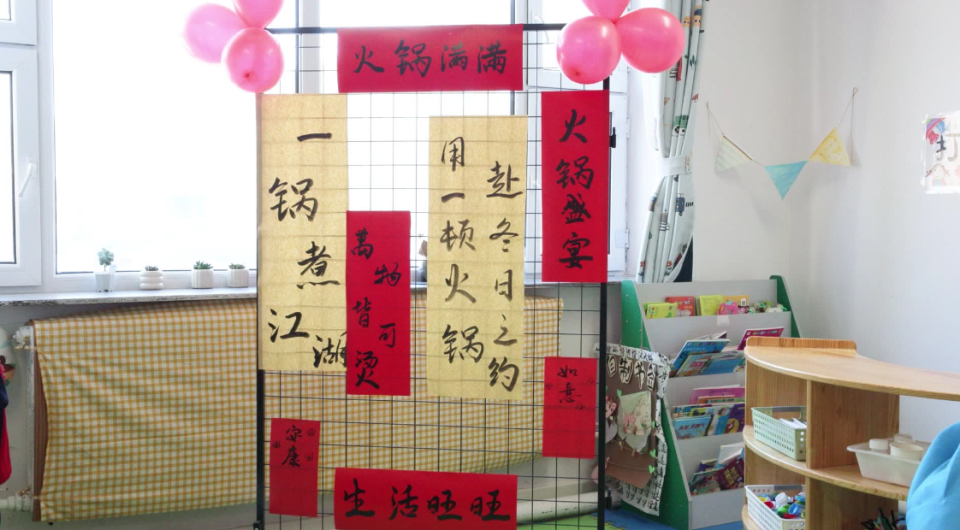 火锅满满
一锅煮江湖
萬物皆可烫
用一顿火锅
赴冬日之约
火锅盛宴
如意
安康
生活旺旺
自制书
打